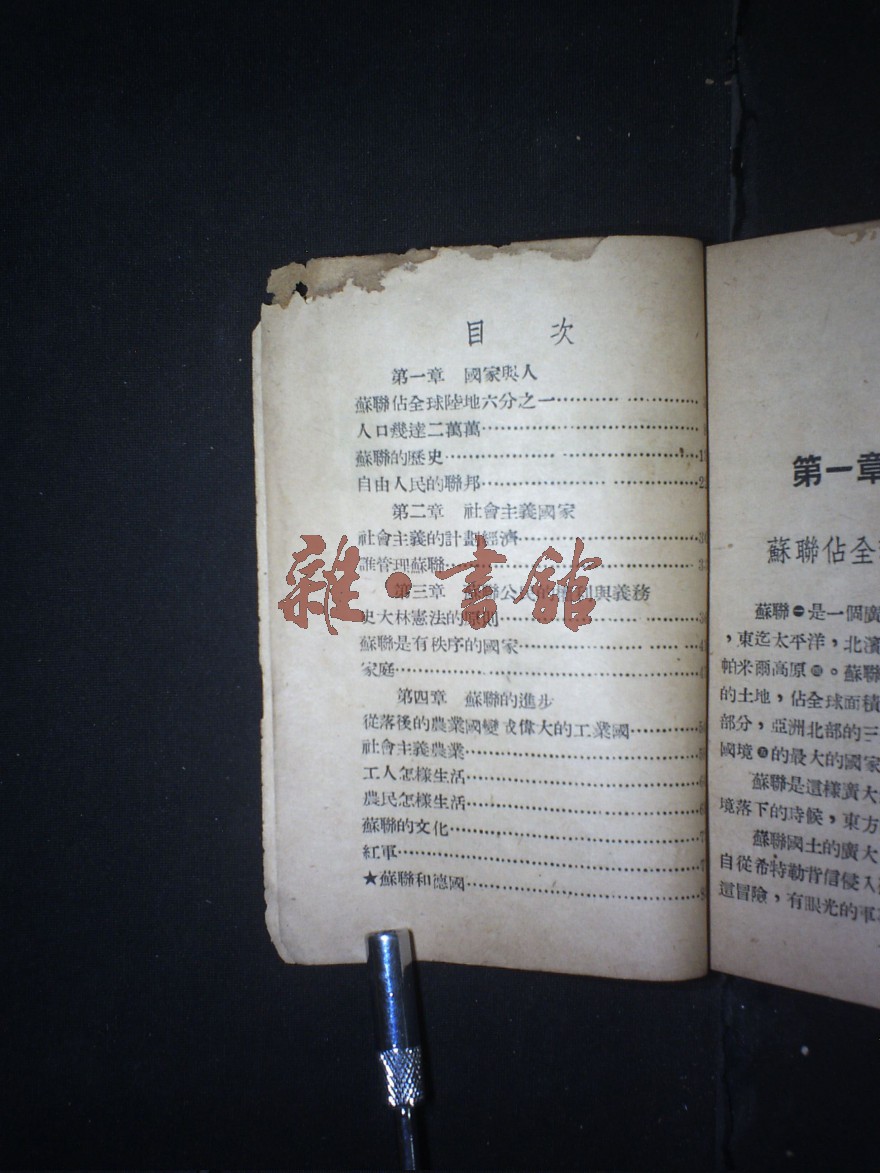 目 次
第一章 國家與人
蘇聯佔全球陸地六分之一
人口幾達二萬萬
蘇聯的歷史
自由人民的聯邦
第二章 社會主義國家
社會主義的計劃經濟
誰管理蘇聯
第三章 蘇聯公民的權利與義務
史大林憲法的原則
蘇聯是有秩序的國家
家庭
第四章 蘇聯的進步
從落後的農業國變成偉大的工業國
社會主義農業
工人怎樣生活
農民怎樣生活
蘇聯的文化
紅軍
★蘇聯和德國
雜·書館
第一章
蘇聯佔全
蘇聯㊀是一個廣
,東迄太平洋,北濱
帕米爾高原 。蘇聯
的土地,佔全球面積
部分,亞洲北部的三
國境 的最大的國家
蘇聯是這樣廣大
境落下的時候,東方
蘇聯國土的廣大
自從希特勒背信侵入
這冒險,有眼光的軍